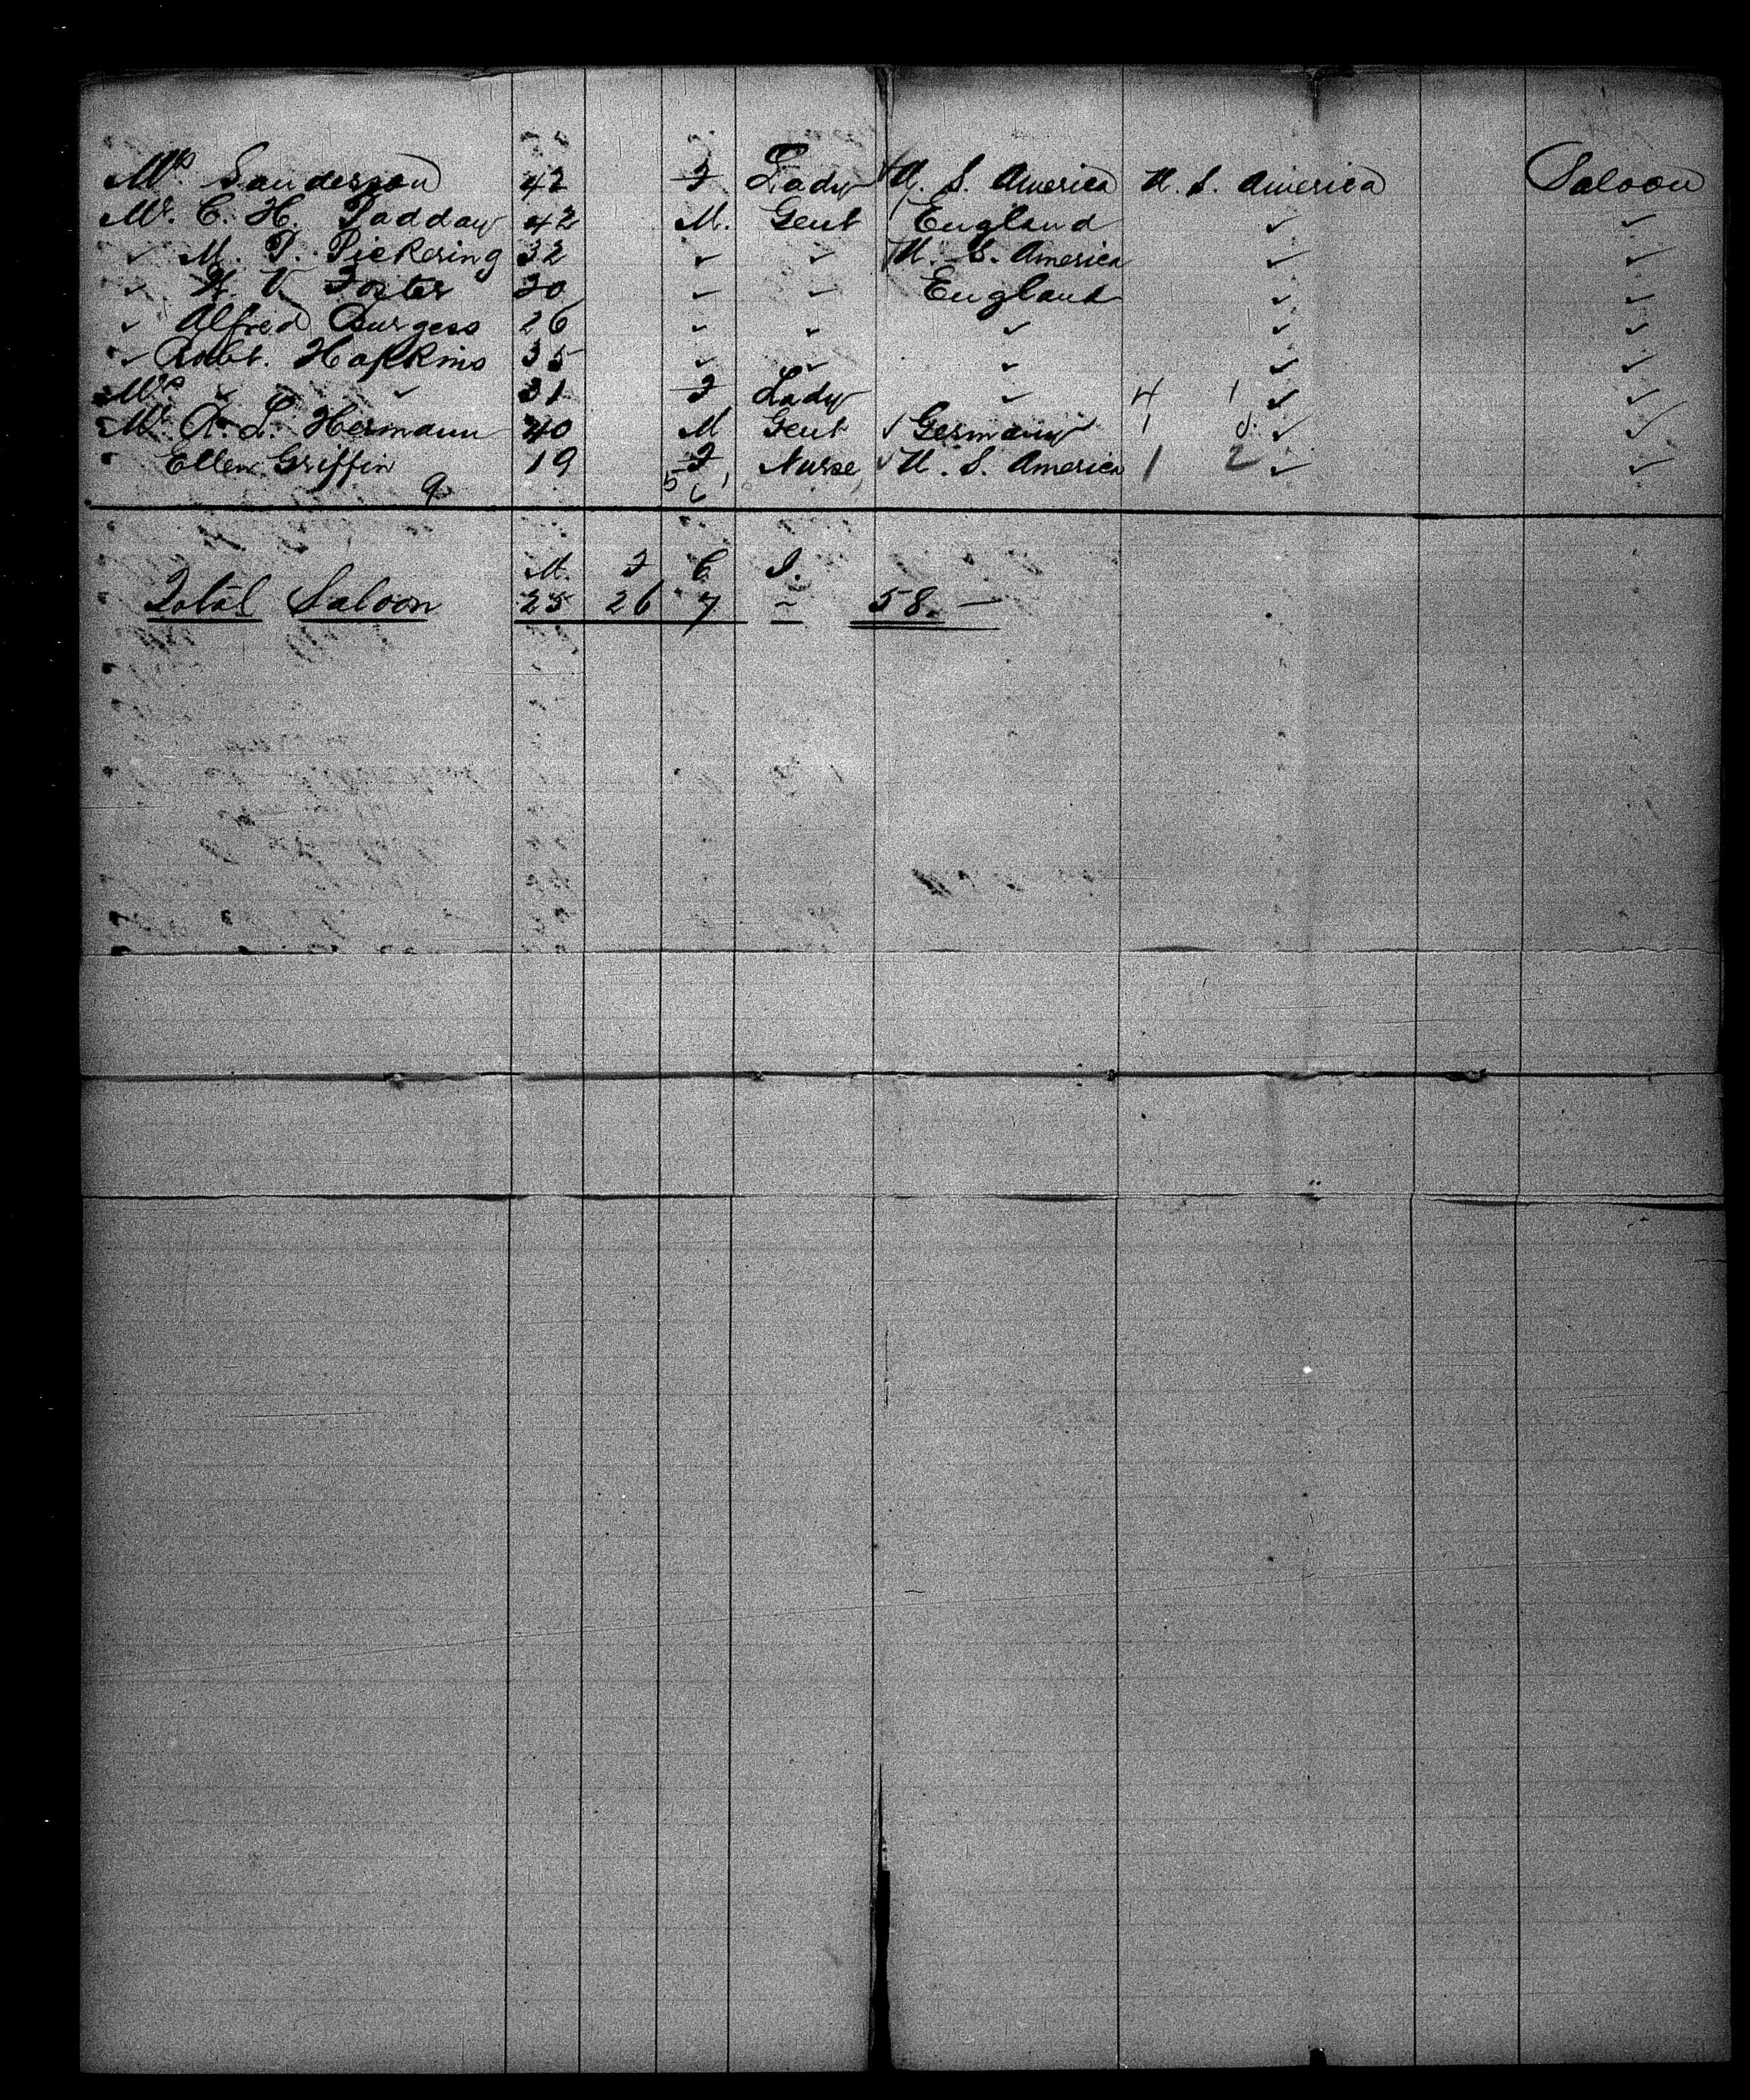 Mrs. Sanderson 42 F Lady U. S. America U. S. America Saloon
Mr. C. H. Padday 42 M. Gent England ✓ ✓
✓ M. P. Pickering 32 ✓ ✓ U. S. America ✓ ✓
✓ V. Foster 30 ✓ ✓ England ✓ ✓
✓ Alfred Burgess 26 ✓ ✓ ✓ ✓ ✓
✓ Robt. Hopkins 35 ✓ ✓ ✓ ✓ ✓
Mrs. ✓ ✓ 31 F Lady ✓ 4 1 ✓ ✓
Mr. A. L. Hermann 40 M Gent ✓ Germany 1 ✓ ✓
Ellen Griffin 19 F Nurse ✓ U. S. America 1 2 ✓ ✓
9 5
M. F C I.
Total Saloon 25 26 7 ~ 58. —